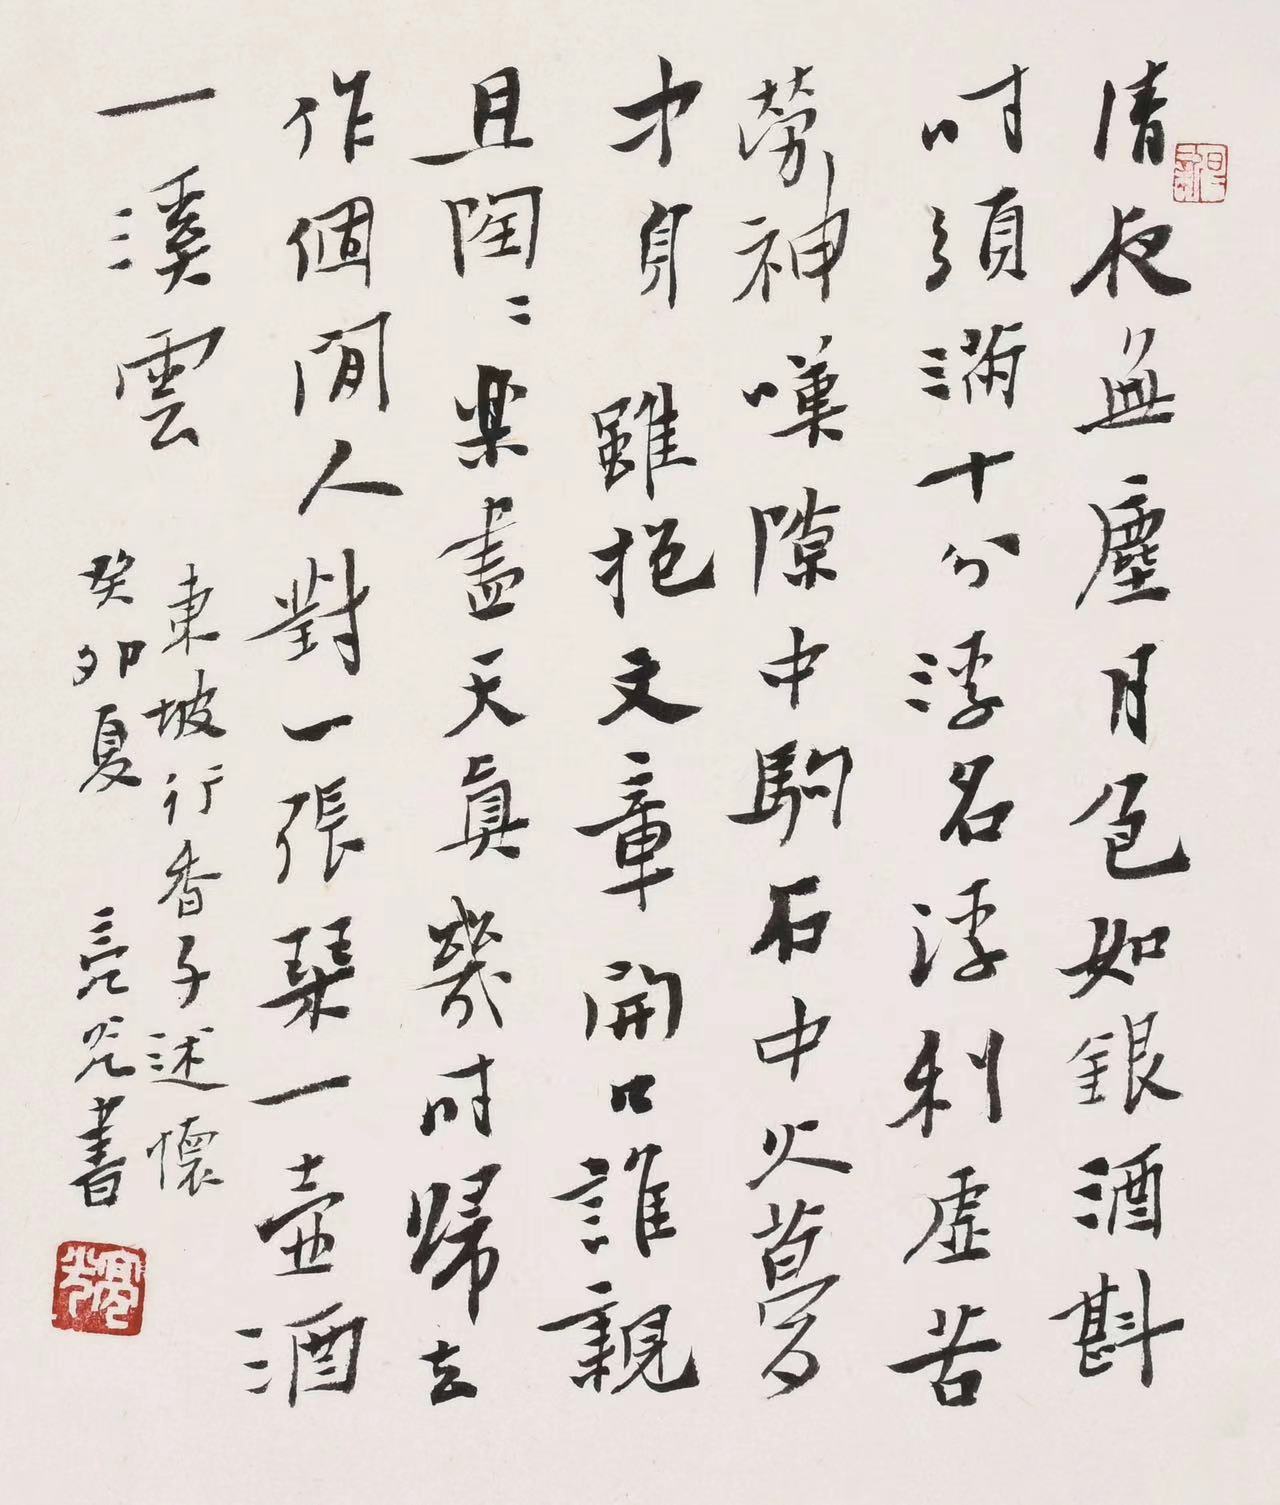 清夜無塵月色如銀酒斟
時須滿十分浮名浮利虛苦
勞神嘆隙中駒石中火夢
中身雖抱文章開口誰親
且陶〻樂盡天真幾時歸去
作個閒人對一張琴一壺酒
一溪雲
東坡行香子述懷
癸卯夏 亮光書
亮光